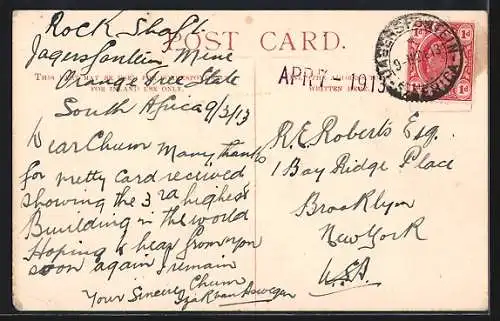 Rock Shaft
Jagersfontein Mine
Orange Free State
South Africa 9/3/13
POST CARD.
FOR INLAND USE ONLY.
WRITTEN HERE.
APR 7 - 1913
JAGERSFONTEIN
1d 1d
Dear Chum Many thanks
for pretty card received
showing the 3rd highest
Building in the world
Hoping to hear from you
soon again I remain
Your Sincere Chum
Izak van Aswegen
R.E. Roberts Esq.
1 Bay Ridge Place
Brooklyn
New York
U.S.A.